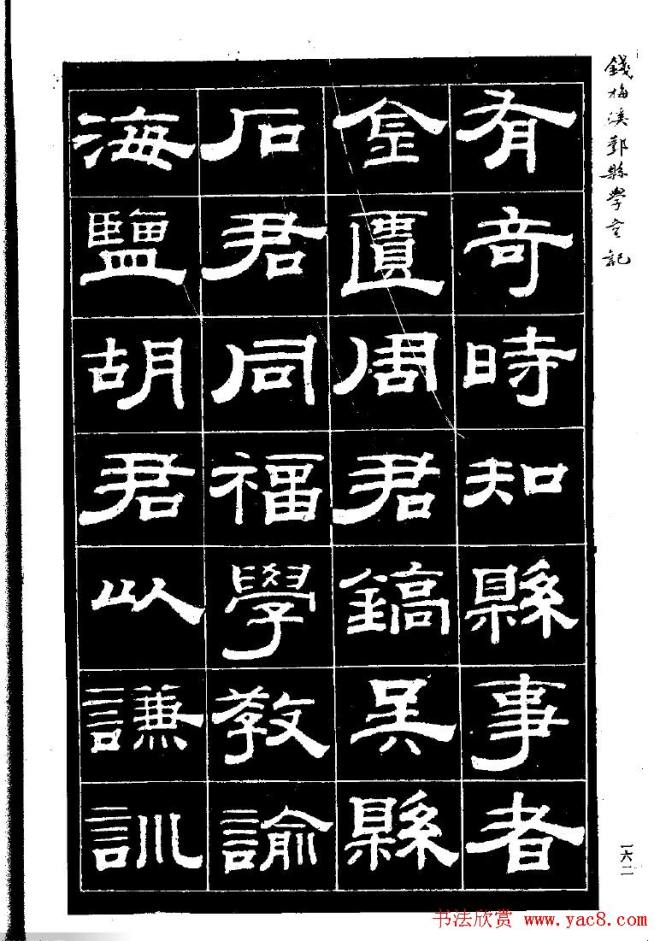 錢梅溪鄞縣學記
有奇時知縣事者
金匱周君鎬吳縣
石君同福學教諭
海鹽胡君以謙訓
一六二
书法欣赏 www.yac8.com